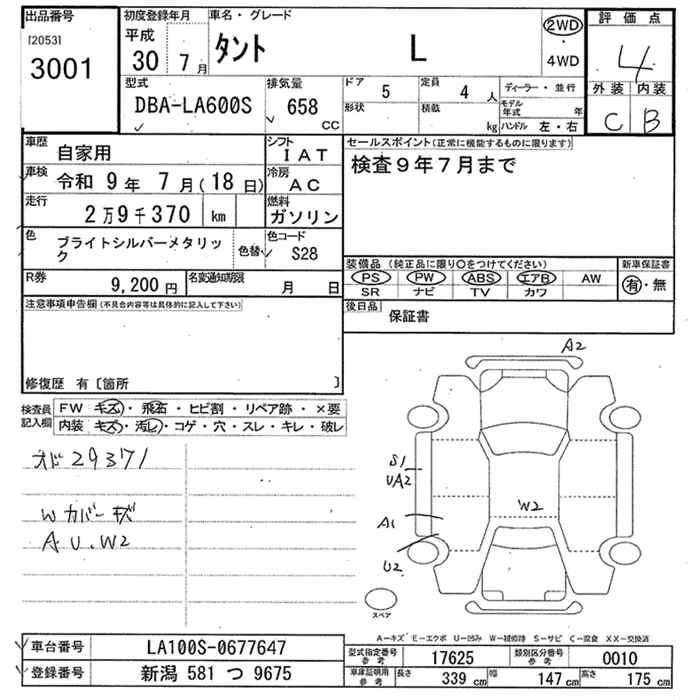 出品番号
[2053]
3001
初度登録年月
平成
30 7月
車名・グレード
タント L
2WD
・
4WD
評価点
4
外装 内装
C B
型式
DBA-LA600S
排気量
658
CC
ドア 5
定員 4 人
ディーラー・並行
形状
積載 kg
モデル年式 年
ハンドル 左・右
車歴
自家用
シフト
IAT
セールスポイント(正常に機能するものに限ります)
検査9年7月まで
車検
令和 9年 7月(18日)
冷房
AC
走行
2万9千370 km
燃料
ガソリン
色
ブライトシルバーメタリック
色替
色コード
S28
R券
9,200円
名変通知期限
月 日
装備品 (純正品に限り○をつけてください)
PS PW ABS エアB AW
SR ナビ TV カワ
新車保証書
有・無
注意事項申告欄(不具合内容等は具体的に記入して下さい)
後日品
保証書
修復歴 有〔箇所 〕
検査員
記入欄
FW キズ・飛石・ヒビ割・リペア跡・×要
内装 キズ・汚レ・コゲ・穴・スレ・キレ・破レ
オド29371
Wカバーキズ
A U、W2
A2
S1
UA2
W2
A1
U2
スペア
A-キズ E-エクボ U-凹み W-補修跡 S-サビ C-腐食 XX-交換済
車台番号
LA100S-0677647
登録番号
新潟 581 つ 9675
型式指定番号
参考
17625
類別区分番号
参考
0010
車庫証明用
参考
長さ 339 cm
幅 147 cm
高さ 175 cm